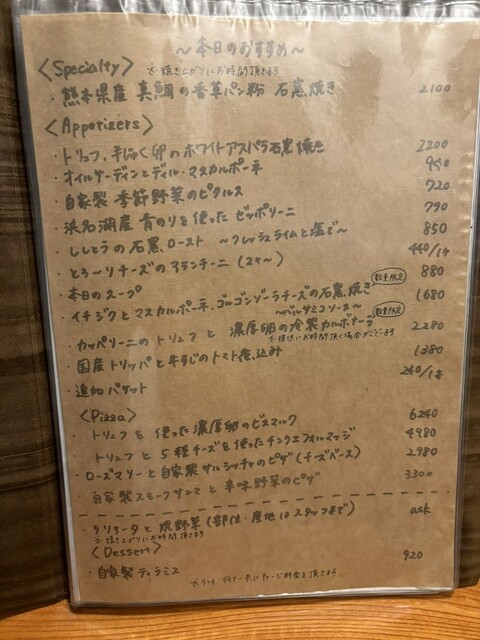 ～本日のおすすめ～
〈Specialty〉 ※焼き上がりにお時間頂きます
・熊本県産 真鯛の香草パン粉 石窯焼き 2100
〈Appetizers〉
・トリュフ、半じゅく卵のホワイトアスパラ石窯焼き 2200
・オイルサーディンとディル・マスカルポーネ
・自家製 季節野菜のピクルス 720
・浜名湖産 青のりを使った ゼッポリーニ 790
・ししとうの石窯ロースト ～フレッシュライムと塩で～ 850
・とろ～りチーズのアランチーニ (2ケ～) 440/1ケ
・本日のスープ 880
・イチジクとマスカルポーネ、ゴルゴンゾーラチーズの石窯焼き 数量限定 1680
～バルサミコソース～
・カッペリーニのトリュフと 濃厚卵の冷製カルボナーラ 数量限定 2280
お時間頂く場合がございます
・国産トリッパと牛すじのトマト煮込み 1380
・追加バケット 240/1
〈Pizza〉
・トリュフを使った濃厚卵のビスマルク 6240
・トリュフと5種チーズを使ったチンクエフォルマッジ 4980
・ローズマリーと自家製サルシッチャのピザ (チーズベース) 2980
・自家製スモークサンマと辛味野菜のピザ 3300
・タリアータと焼野菜 (部位・産地はスタッフまで) ask
※焼き上がりにお時間頂きます
〈Dessert〉
・自家製ティラミス 920